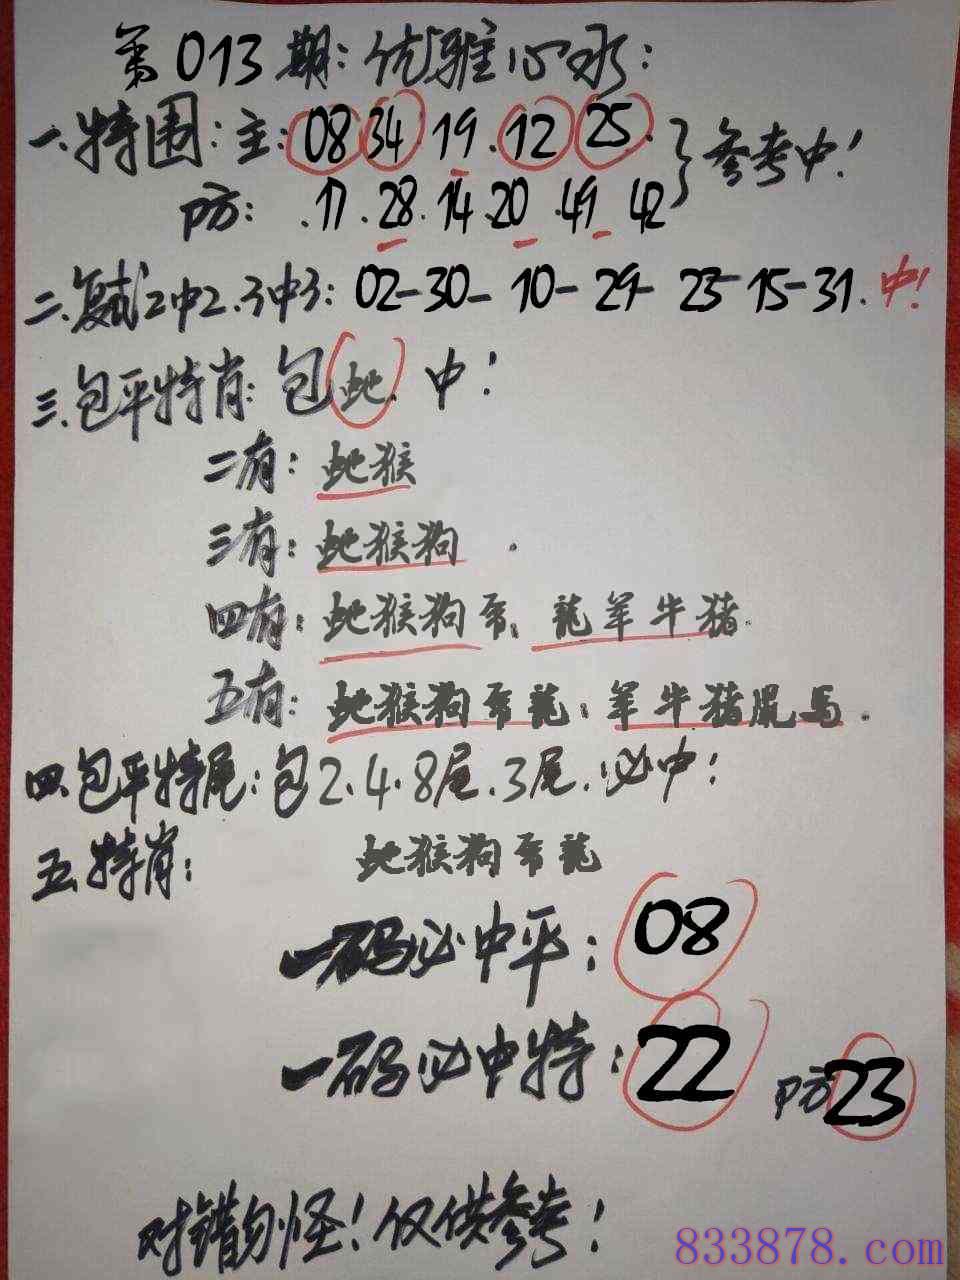 第013期:优雅心水:
一.特围:主:08 34.19.12 25.}参考中!
防: .17.28.14.20.49 42
二.复式2中2.3中3:02-30-10-29-23-15-31.中!
三.包平特肖:包蛇.中!
二有:蛇猴
三有:蛇猴狗.
四有:蛇猴狗 龍羊牛猪.
五有:蛇猴狗 龍:羊牛猪鼠馬.
四.包平特尾:包2.4.8尾.3尾.必中!
五.特肖: 蛇猴狗 龍
一码必中平:08
一码必中特:22 防23
对错勿怪!仅供参考!
833878.com